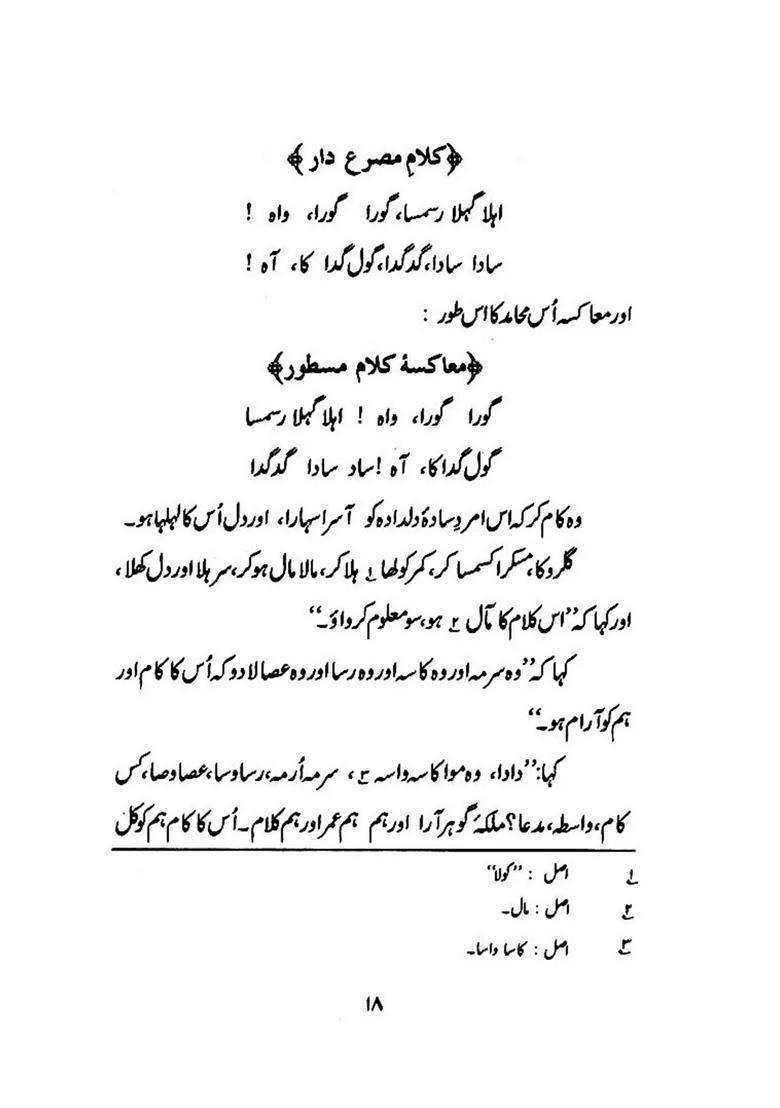 ﴿کلامِ مصرع دار﴾
اہلا گہلا رسمسا، گورا گورا، واہ !
سادا سادا، گدگدا، گول گدا کا، آہ !
اور معاکسہ اُس محامد کا اس طور :
﴿معاکسۂ کلام مسطور﴾
گورا گورا، واہ ! اہلا گہلا رسمسا
گول گدا کا، آہ ! ساد سادا گدگدا
وہ کام کر کہ اس امردِ سادۂ دلدادہ کو آسرا سہارا، اور دل اُس کا لہلہا ہو۔
گلرو کا، مسکرا کسمسا کر، کمر کولھا ۱؎ ہلا کر، مالا مال ہو کر، سر ہلا اور دل کھلا،
اور کہا کہ ’’اس کلام کا مآل ۲؎ ہو، سو معلوم کرواؤ۔‘‘
کہا کہ ’’وہ سرمہ اور وہ کاسہ اور وہ رسا اور وہ عصا لا دو کہ اُس کا کام اور
ہم کو آرام ہو۔‘‘
کہا: ’’دادا، وہ موا کاسہ واسہ ۳؎، سرمہ اُرمہ، رسا وسا، عصا وصا، کس
کام، واسطہ، مدعا؟ ملکۂ گوہر آرا اور ہم ہم عمر اور ہم کلام۔ اُس کا کام ہم کو کل
۱؎ اصل : ’’کولا‘‘
۲؎ اصل : مال۔
۳؎ اصل : کاسا واسا۔
۱۸